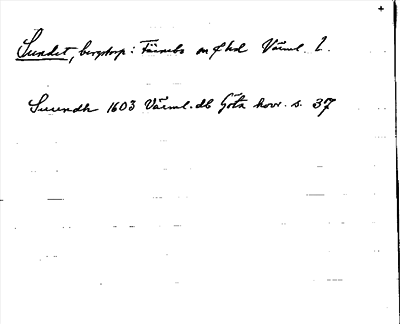 Sundet, bergstorp: Färnebo sn o. hd Värml. l.
Suundh 1603 Värml. db Göta hovr. s. 37